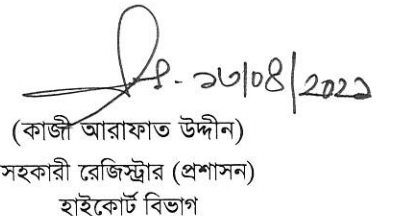 (কাজী আরাফাত উদ্দীন)
সহকারী রেজিস্ট্রার (প্রশাসন)
হাইকোর্ট বিভাগ